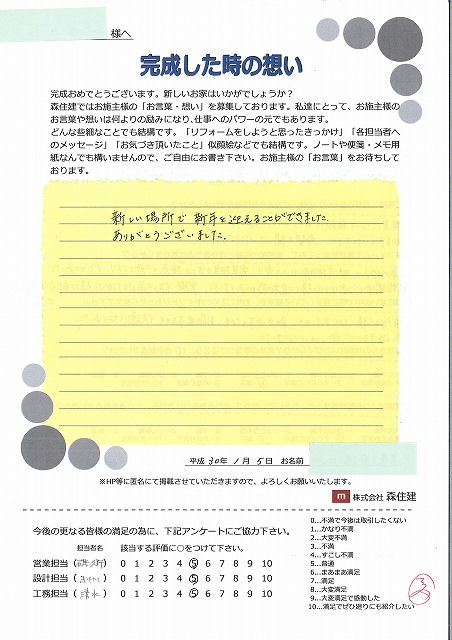 様へ
完成した時の想い
完成おめでとうございます。新しいお家はいかがでしょうか？
森住建ではお施主様の「お言葉・想い」を募集しております。私達にとって、お施主様の
お言葉や想いは何よりの励みになり、仕事へのパワーの元でもあります。
どんな些細なことでも結構です。「リフォームをしようと思ったきっかけ」「各担当者へ
のメッセージ」「お気づき頂いたこと」似顔絵などでも結構です。ノートや便箋・メモ用
紙なんでも構いませんので、ご自由にお書き下さい。お施主様の「お言葉」をお待ちして
おります。
新しい場所で 新年を迎えることができました。
ありがとうございました。
平成 30年 1月 5日 お名前
※HP等に匿名にて掲載させていただきますので、よろしくお願いいたします。
m 株式会社 森住建
今後の更なる皆様の満足の為に、下記アンケートにご協力下さい。
担当者名 該当する評価に○をつけて下さい。
営業担当 ( ) 0 1 2 3 4 5 6 7 8 9 10
設計担当 ( ) 0 1 2 3 4 5 6 7 8 9 10
工務担当 (清水) 0 1 2 3 4 5 6 7 8 9 10
0…不満で今後は取引したくない
1…かなり不満
2…大変不満
3…不満
4…すこし不満
5…普通
6…まあまあ満足
7…満足
8…大変満足
9…大変満足で感動した
10…満足でぜひ廻りにも紹介したい